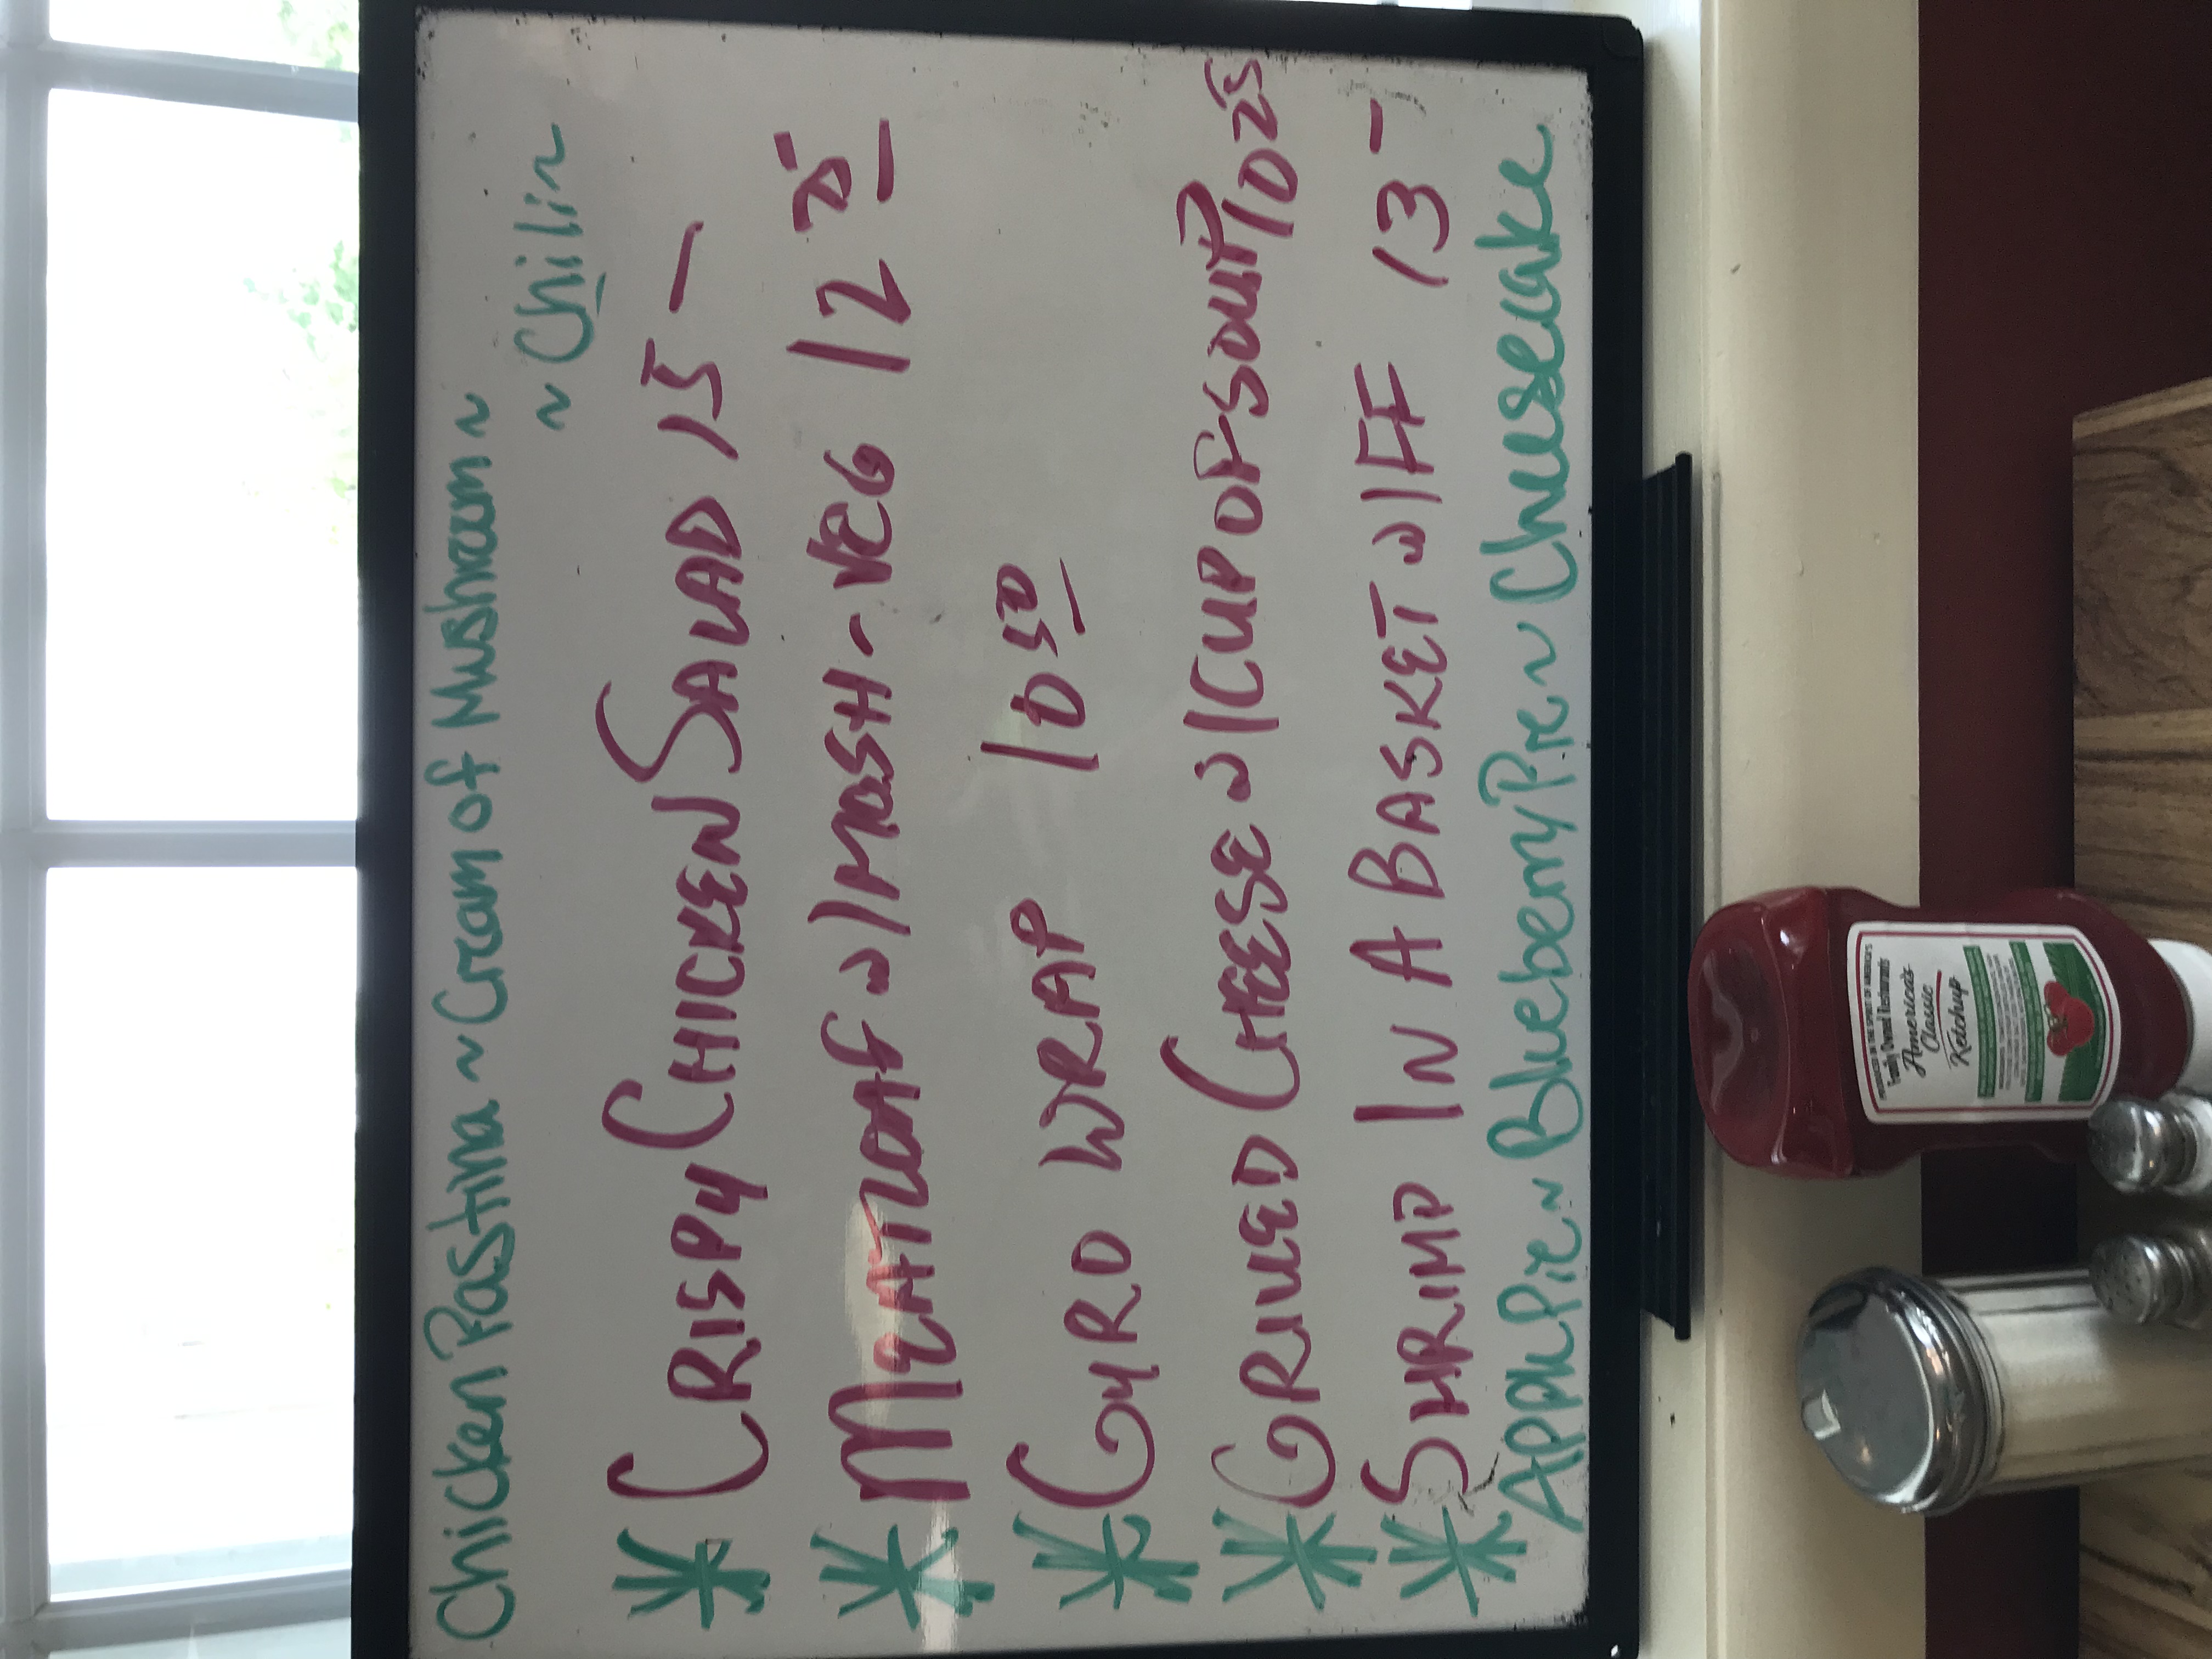 Chicken Pastina ~ Cream of Mushroom ~
~ Chili ~
* CRISPY CHICKEN SALAD 15 -
* MEATLOAF w/ MASH - VEG 12 75
* GYRO WRAP 10 50
* GRILLED CHEESE w/ CUP OF SOUP 10 25
* SHRIMP IN A BASKET w/ FF 13 -
Apple Pie ~ Blueberry Pie ~ Cheesecake
Family Owned Restaurants
America's
Classic
Ketchup